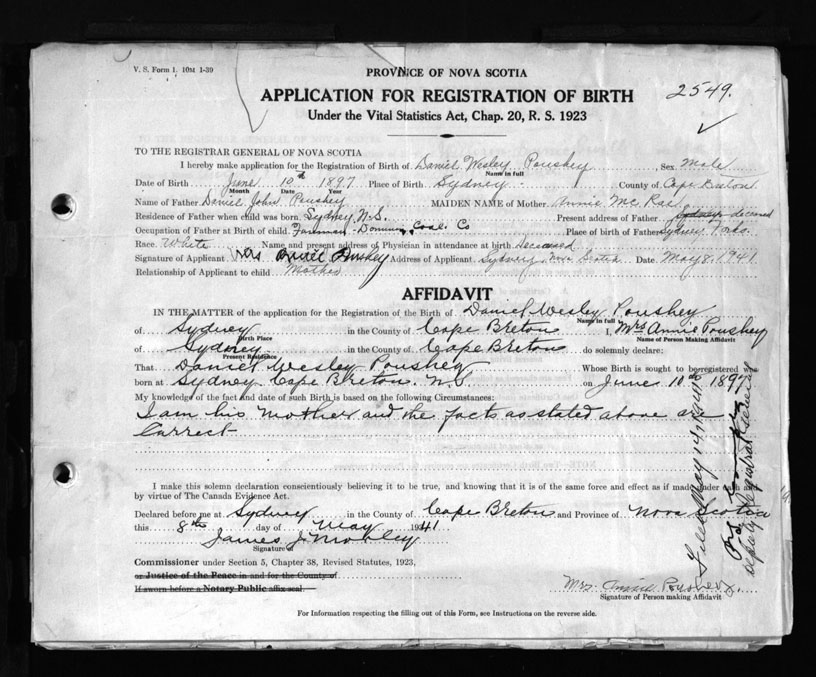 V. S. Form 1. 10M 1-39
PROVINCE OF NOVA SCOTIA
APPLICATION FOR REGISTRATION OF BIRTH
2549.
Under the Vital Statistics Act, Chap. 20, R. S. 1923
TO THE REGISTRAR GENERAL OF NOVA SCOTIA
I hereby make application for the Registration of Birth of Daniel Wesley Poushey Sex Male
Name in full
Date of Birth June 10th 1897 Place of Birth Sydney County of Cape Breton
Month Date Year
Name of Father Daniel John Poushey MAIDEN NAME of Mother Annie McRae
Residence of Father when child was born. Sydney N.S. Present address of Father Sydney deceased
Occupation of Father at Birth of child. Coal Co Place of birth of Father Sydney
Race. White Name and present address of Physician in attendance at birth deceased
Signature of Applicant Mrs Annie Poushey Address of Applicant Sydney, Nova Scotia Date May 8, 1941
Relationship of Applicant to child Mother
AFFIDAVIT
IN THE MATTER of the application for the Registration of the Birth of Daniel Wesley Poushey
Name in full
of Sydney in the County of Cape Breton I, Mrs Annie Poushey
Birth Place Name of Person Making Affidavit
of Sydney in the County of Cape Breton do solemnly declare:
Present Residence
That Daniel Wesley Poushey Whose Birth is sought to be registered was
born at Sydney Cape Breton. N.S. on June 10th 1897
My knowledge of the fact and date of such Birth is based on the following Circumstances:
I am his Mother and the facts as stated above are
Correct
I make this solemn declaration conscientiously believing it to be true, and knowing that it is of the same force and effect as if made under oath
by virtue of The Canada Evidence Act.
Declared before me at Sydney in the County of Cape Breton and Province of Nova Scotia
this 8th day of May 1941
James J
Signature of
Commissioner under Section 5, Chapter 38, Revised Statutes, 1923,
or Justice of the Peace in and for the County of
If sworn before a Notary Public affix seal.
Mrs. Annie Poushey.
Signature of Person making Affidavit
For Information respecting the filling out of this Form, see Instructions on the reverse side.
Filed May 14
Deputy Registrar General